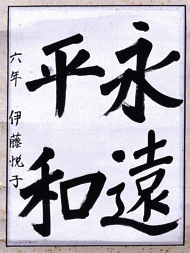 永遠
平和
六年 伊藤悦子